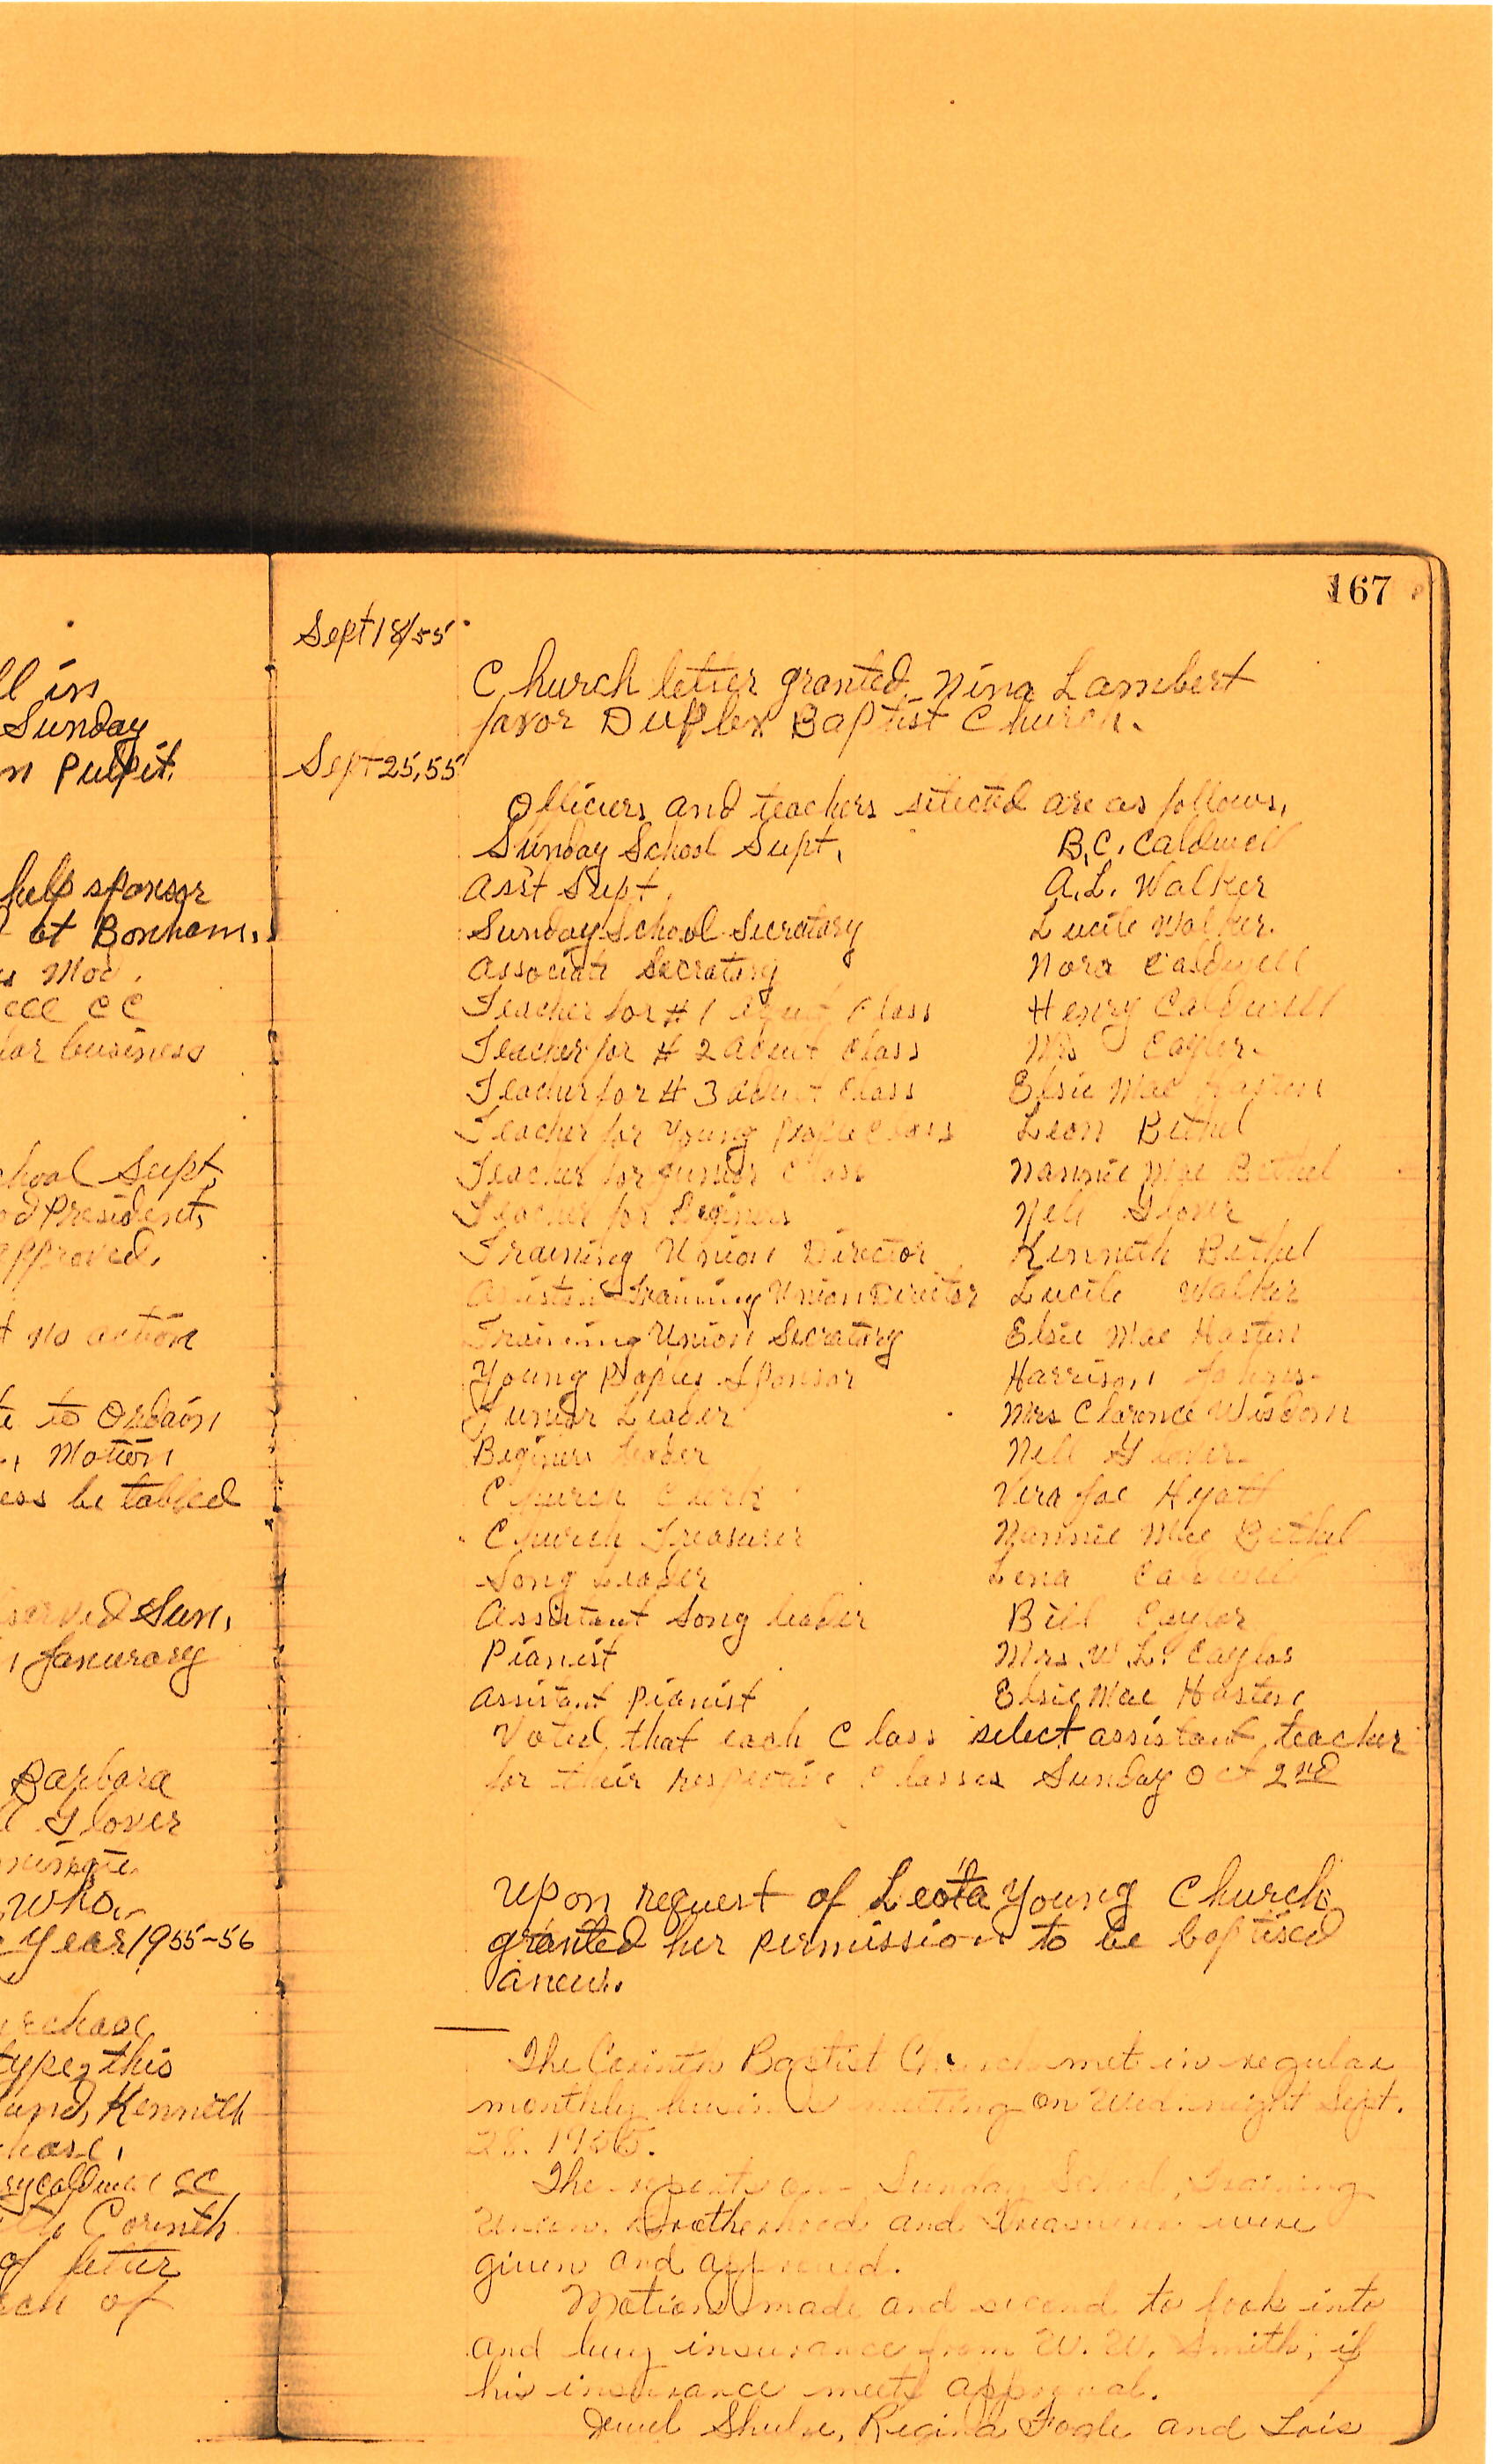 ll in
Sunday
n Pulpit.
help sponsor
at Bonham.
s Mod.
ccc CC
lar business
chool Supt,
od President,
approved.
t no action
te to Ordain
., Motion
ess be tabled
served Sun.
, Janurary
Barbara
Glover
who
e year 1955-56
rchase
type, this
and, Kenneth
hase.
Corinth
of letter
rch of
167
Sept 18/55
Church letter granted Nina Lambert
favor Duplex Baptist Church.
Sept 25, 55
Officers and teachers selected are as follows,
Sunday School Supt. B.C. Caldwell
Ass't Supt. A.L. Walker
Sunday School Secretary Lucile Walker.
Associate Secretary Nora Caldwell
Teacher for #1 Adult Class Henry Caldwell
Teacher for #2 Adult Class Mrs Caylor.
Teacher for #3 Adult Class Elsie Mae Hasten
Teacher for Young People Class Leon Bethel
Teacher for Junior Class Nannie Mae Bethel
Teacher for Beginers Nell Glover
Training Union Director Kenneth Bethel
Assistant Training Union Director Lucile Walker
Training Union Secretary Elsie Mae Hasten
Young Peoples Sponsor Harrison Johns.
Junior Leader Mrs Clarence Wisdom
Beginers leader Nell Glover.
Church Clerk Vera Joe Hyatt
Church Treasurer Nannie Mae Bethel
Song Leader Lena Caldwell
Assistant Song leader Bill Caylor
Pianist Mrs. W.L. Caylor
Assistant Pianist Elsie Mae Hasten
Voted that each Class select assistant teacher
for their respective Classes Sunday Oct 2nd
Upon request of Leota Young Church
granted her permission to be baptised
anew.
The Corinth Baptist Church met in regular
monthly business meeting on Wed. night Sept.
28. 1955.
The reports on Sunday School, Training
Union, Brotherhood and Treasurer were
given and approved.
Motion made and second to look into
and buy insurance from W. W. Smith, if
his insurance meets approval.
Jewel Shulze, Regina Fogle and Lois